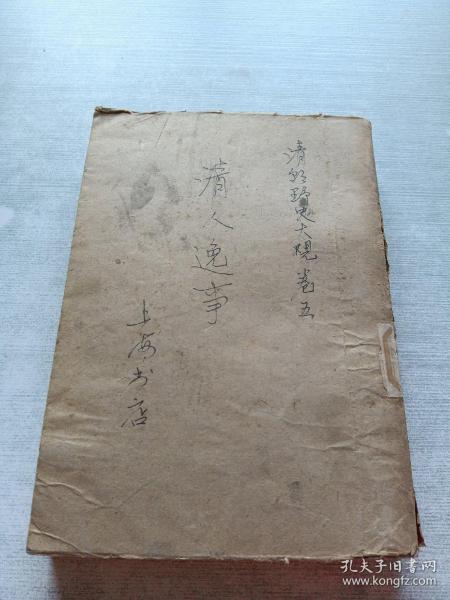 清朝野史大观卷五
清人逸事
上海书店
孔夫子旧书网
www.kongfz.com